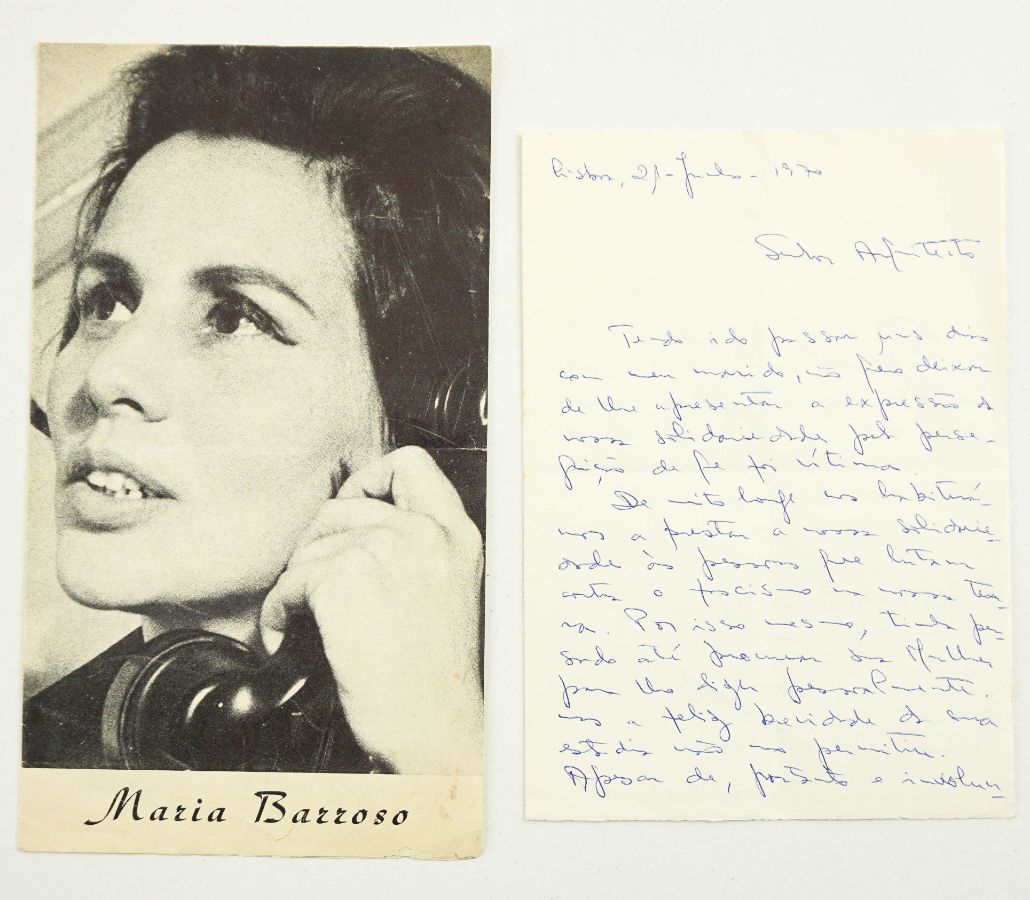 Maria Barroso
Lisboa, 21-Junho-1970
Senhor Arquitecto
Tendo ido passar uns dias
com meu marido, não quero deixar
de lhe apresentar a expressão da
nossa solidariedade pela perse-
guição de que foi vítima.
De muito longe nos habituá-
mos a prestar a nossa solidarie-
dade às pessoas que lutam
contra o fascismo na nossa ter-
ra. Por isso mesmo, tinha pen-
sado até procurar sua Mulher
para lho dizer pessoalmente.
mas a feliz brevidade da sua
estadia não mo permitiu.
Apesar de, portanto e involun-